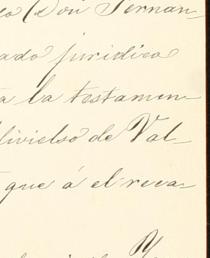 Don Fernan-
ado juridica
a la testamen-
livielso de Val-
que á el reca-